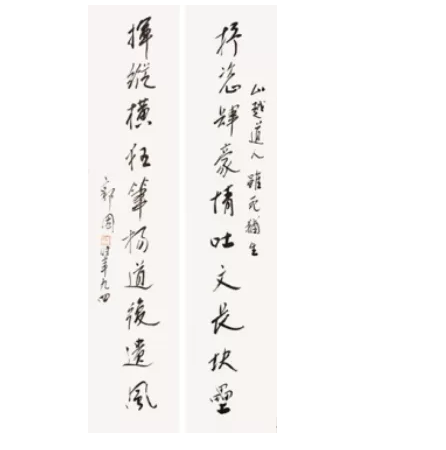 山越道人雖死猶生
抒恣肆豪情吐文長块壘
揮縱橫狂筆揚道復遺風
郭因時年九四